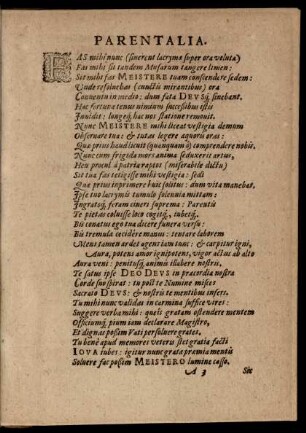 PARENTALIA.
FAS mihi nunc (sinerent lacrymæ super ora volutæ)
Fas mihi sit tandem Musarum tangere limen:
Sit mihi fas MEISTERE tuam conscendere sedem:
Unde resolvebas (cunctis mirantibus) ora
Conventu in medio: dum fata DEVsq́; sinebant.
Hac fortuna tenus nimium successibus istis
Invidit: longeq́; hac nos statione removit.
Nunc MEISTERE mihi liceat vestigia demum
Observare tua: & totas legere æquoris oras:
Qua prius haud licuit (quanquam) comprendere nobis.
Nunc cum frigida mors anima seduxerit artus,
Heu procul à patria raptos (miserabile dictu)
Sit tua fas tetigisse mihi vestigia: sedi
Quæ petus inprimere huic solitus: dum vita manebat,
Ipse tuo lacrymis tumulo solennia mittam:
Ingratoq́; feram cineri suprema: Parentis
Te pietas coluisse loco cogitq́, iubetq́.
Bis conatus ego tua dicere funera versu:
Bis tremula cecidere manus: tentare laborem
Mens tamen ardet agens tantum: & carpitur igni,
Aura, potens amor ignipotens, vigor actus ab alto
Aura veni: penitusq́; animis illabere nostris,
Te fatus ipse DEO DEVS in præcordia nostra
Corde suspirat: tu post te Numine mises
Sacrato DEVS: & nostris te mentibus infers.
Tu mihi nunc validas in carmina suffice vires:
Suggere verba mihi: queis gratam ostendere mentem
Officiumq́; pium tam declarare Magistro,
Et dignas possim Vati persolvere grates.
Tu bene apud memores veteris stet gratia facti
IOVA iubes: igitur nunc grata præmia mentis
Solvere fac possim MEISTERO lumine casso.
A 3 Sic